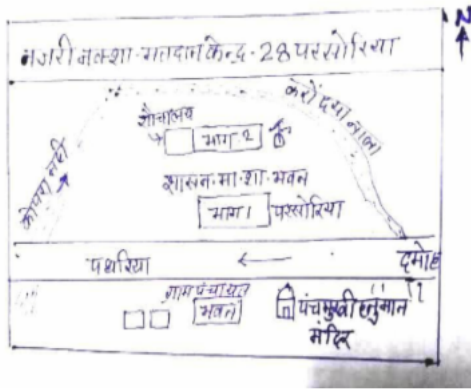 N
नजरी नक्शा-मतदान केन्द्र-28 परसोरिया
करोंदया नाला
शौचालय
भाग-2
कोपरा नदी
शासन-मा-शा-भवन
भाग 1 परसोरिया
पथरिया
दमोह
ग्राम पंचायत
भवन
पंचमुखी हनुमान
मंदिर